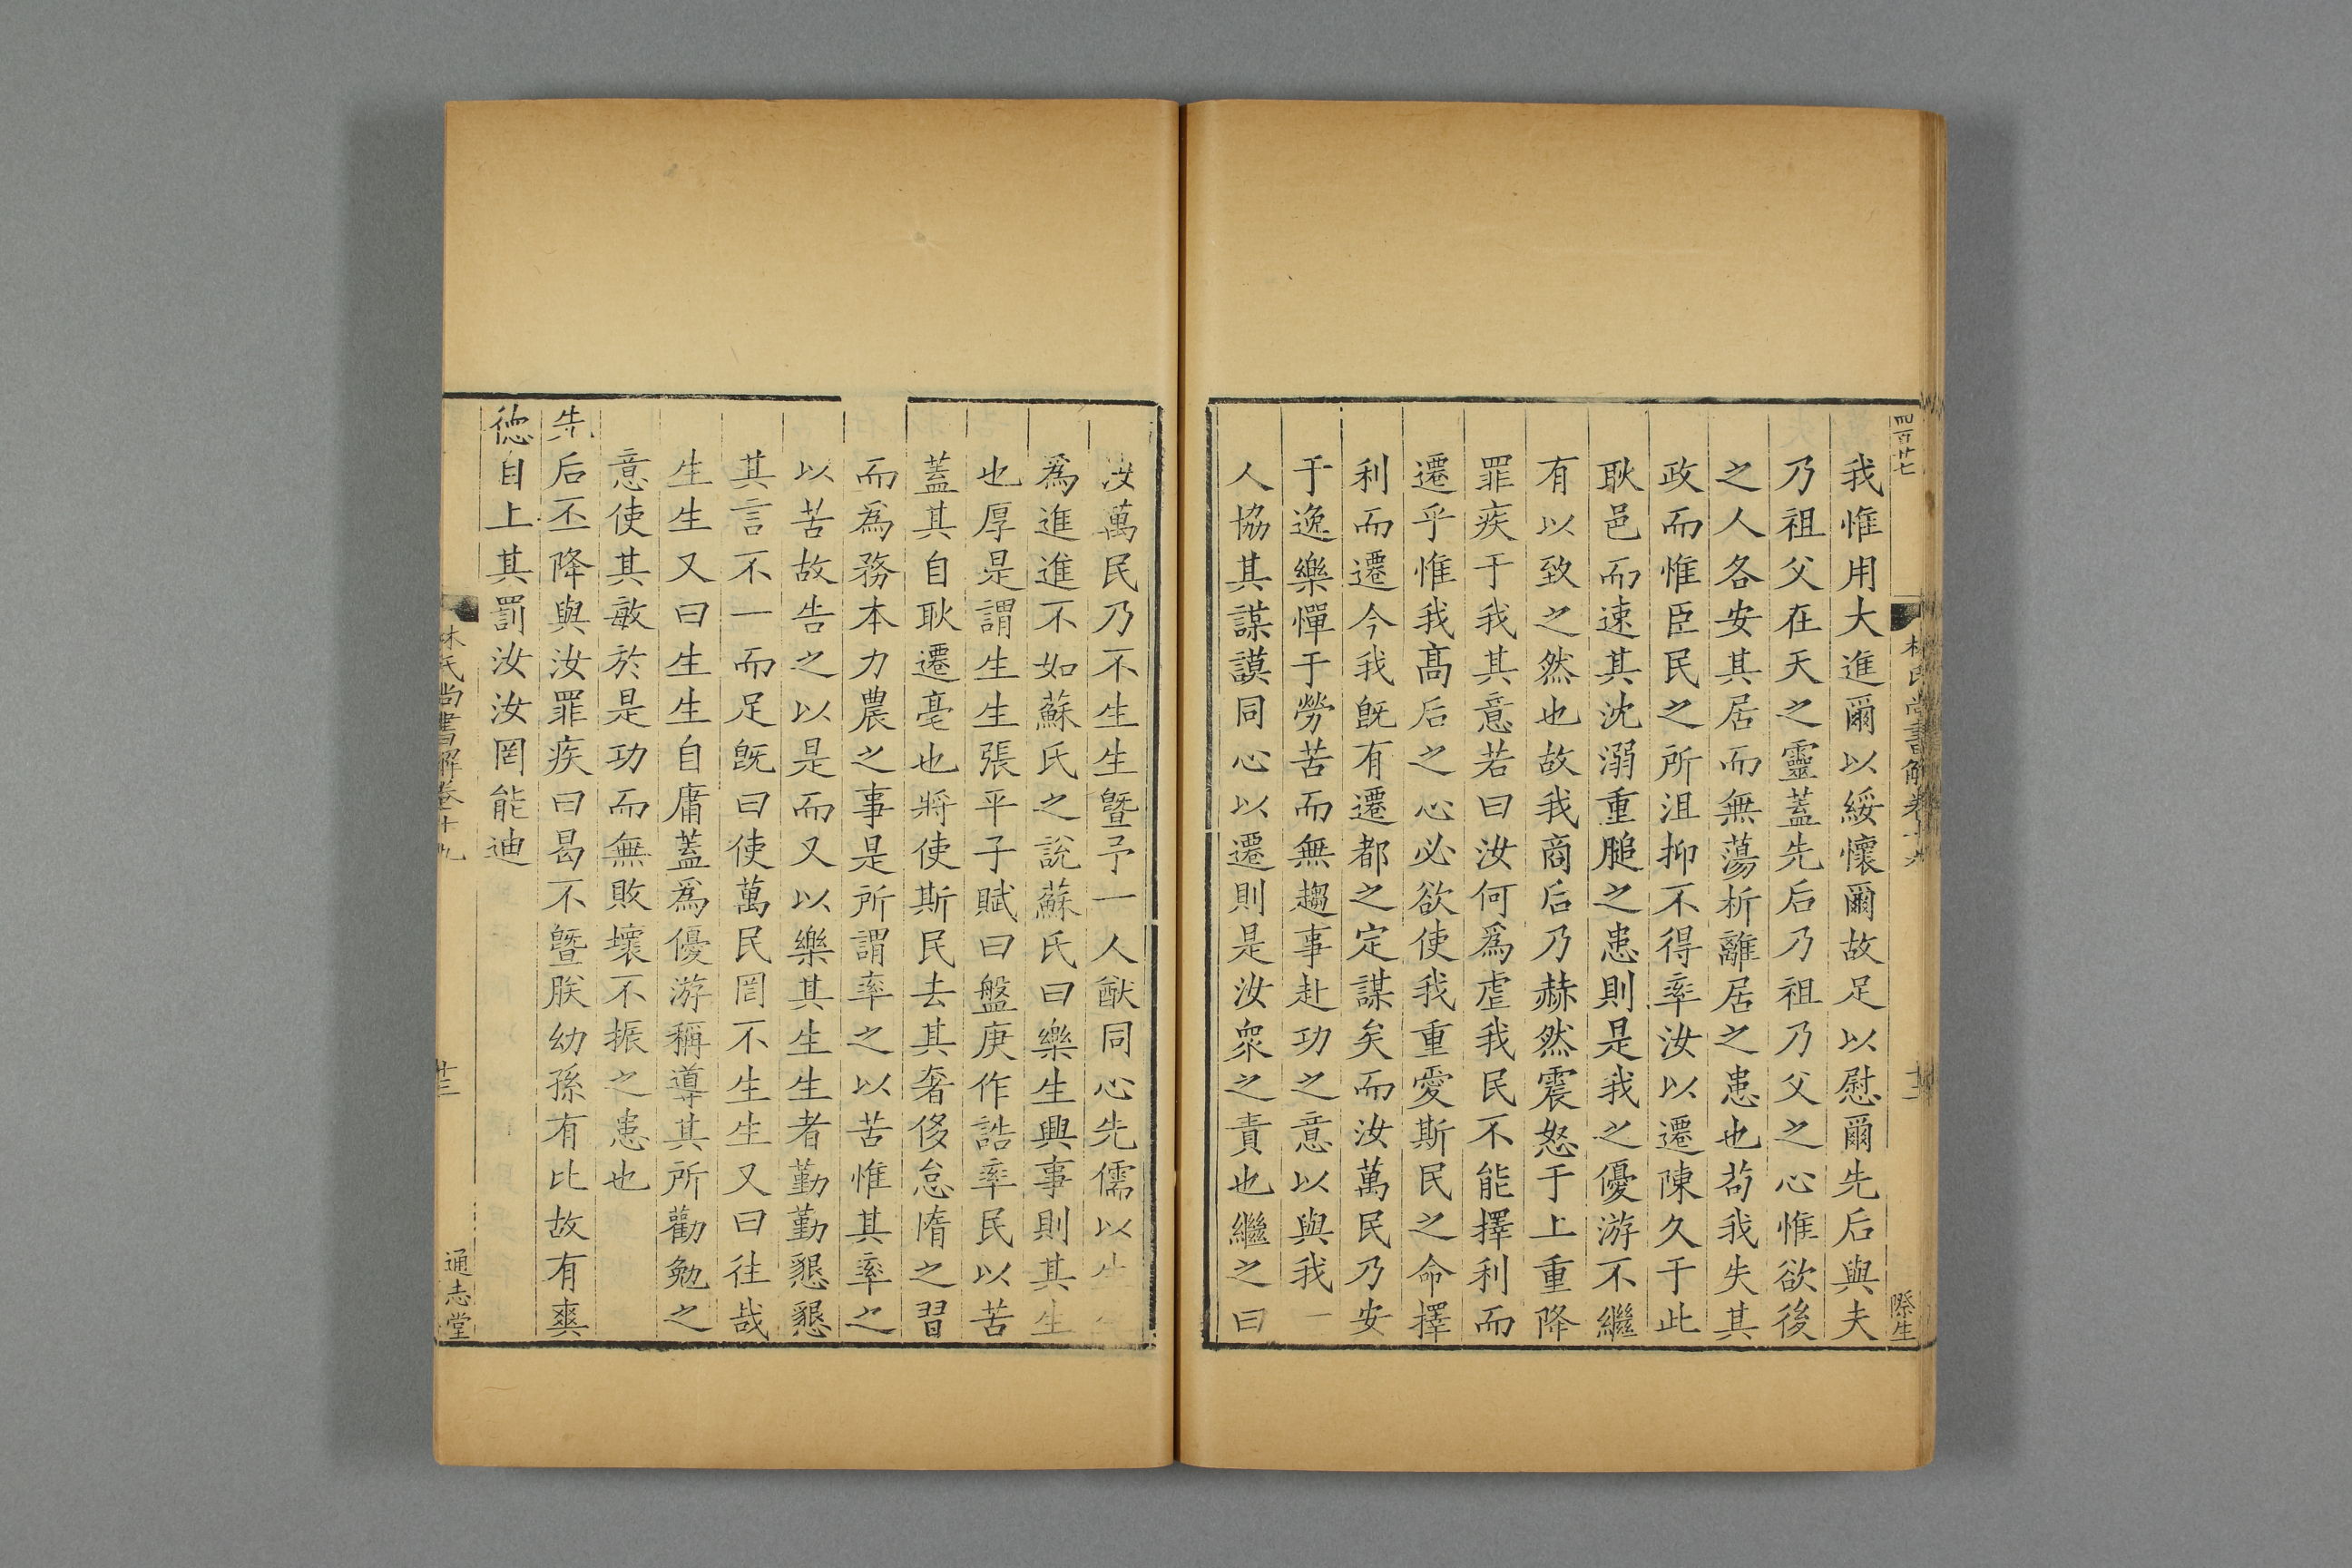 四百廿七
林氏尚書解卷十九
際生
我惟用大進爾以綏懷爾故足以慰爾先后與夫
乃祖父在天之靈蓋先后乃祖乃父之心惟欲後
之人各安其居而無蕩析離居之患也茍我失其
政而惟臣民之所沮抑不得率汝以遷陳久于此
耿邑而速其沈溺重膇之患則是我之優游不繼
有以致之然也故我商后乃赫然震怒于上重降
罪疾于我其意若曰汝何爲虐我民不能擇利而
遷乎惟我髙后之心必欲使我重愛斯民之命擇
利而遷今我旣有遷都之定謀矣而汝萬民乃安
于逸樂憚于勞苦而無趨事赴功之意以與我一
人協其謀謨同心以遷則是汝衆之責也繼之曰
汝萬民乃不生生曁予一人猷同心先儒以生生
爲進進不如蘇氏之說蘇氏曰樂生興事則其生
也厚是謂生生張平子賦曰盤庚作誥率民以苦
蓋其自耿遷亳也將使斯民去其奢侈怠惰之習
而爲務本力農之事是所謂率之以苦惟其率之
以苦故告之以是而又以樂其生生者勤勤懇懇
其言不一而足旣曰使萬民罔不生生又曰往哉
生生又曰生生自庸蓋爲優游稱導其所勸勉之
意使其敏於是功而無敗壞不振之患也
先后丕降與汝罪疾曰曷不曁朕幼孫有比故有爽
徳自上其罰汝汝罔能迪
林氏尚書解卷十九
廿三
通志堂